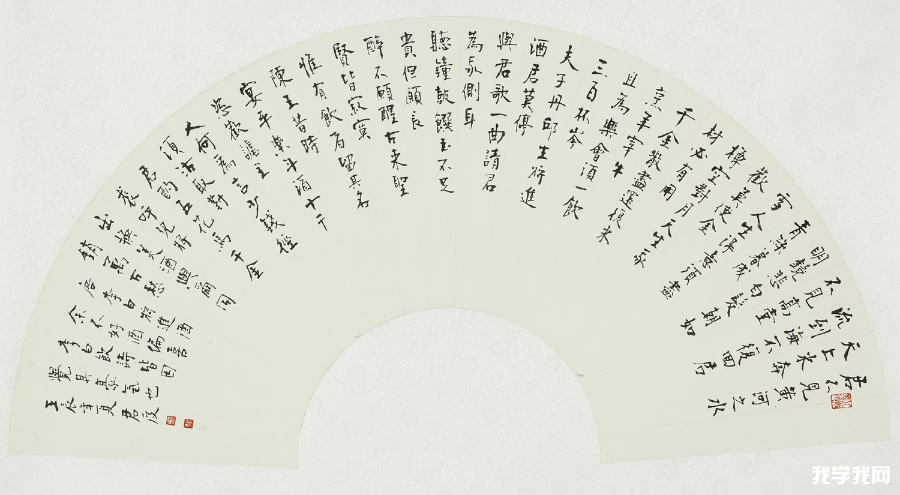 君不見黃河之水
天上來奔
流到海不復回君
不見高堂
明鏡悲白髮朝如
青絲暮成
雪人生得意須盡
歡莫使金
樽空對月天生我
材必有用
千金散盡還復來
烹羊宰牛
且為樂會須一飲
三百杯岑
夫子丹邱生將進
酒君莫停
與君歌一曲請君
為我側耳
聽鐘鼓饌玉不足
貴但願長
醉不願醒古來聖
賢皆寂寞
惟有飲者留其名
陳王昔時
宴平樂斗酒十千
恣歡謔主
人何為言少錢徑
須沽取對
君酌五花馬千金
裘呼兒將
出換美酒與爾同
銷萬古愁
唐李白將進酒
余不好酒偏喜
李白飲詩皆因
覺其豪氣也
壬辰年夏君
我学我网